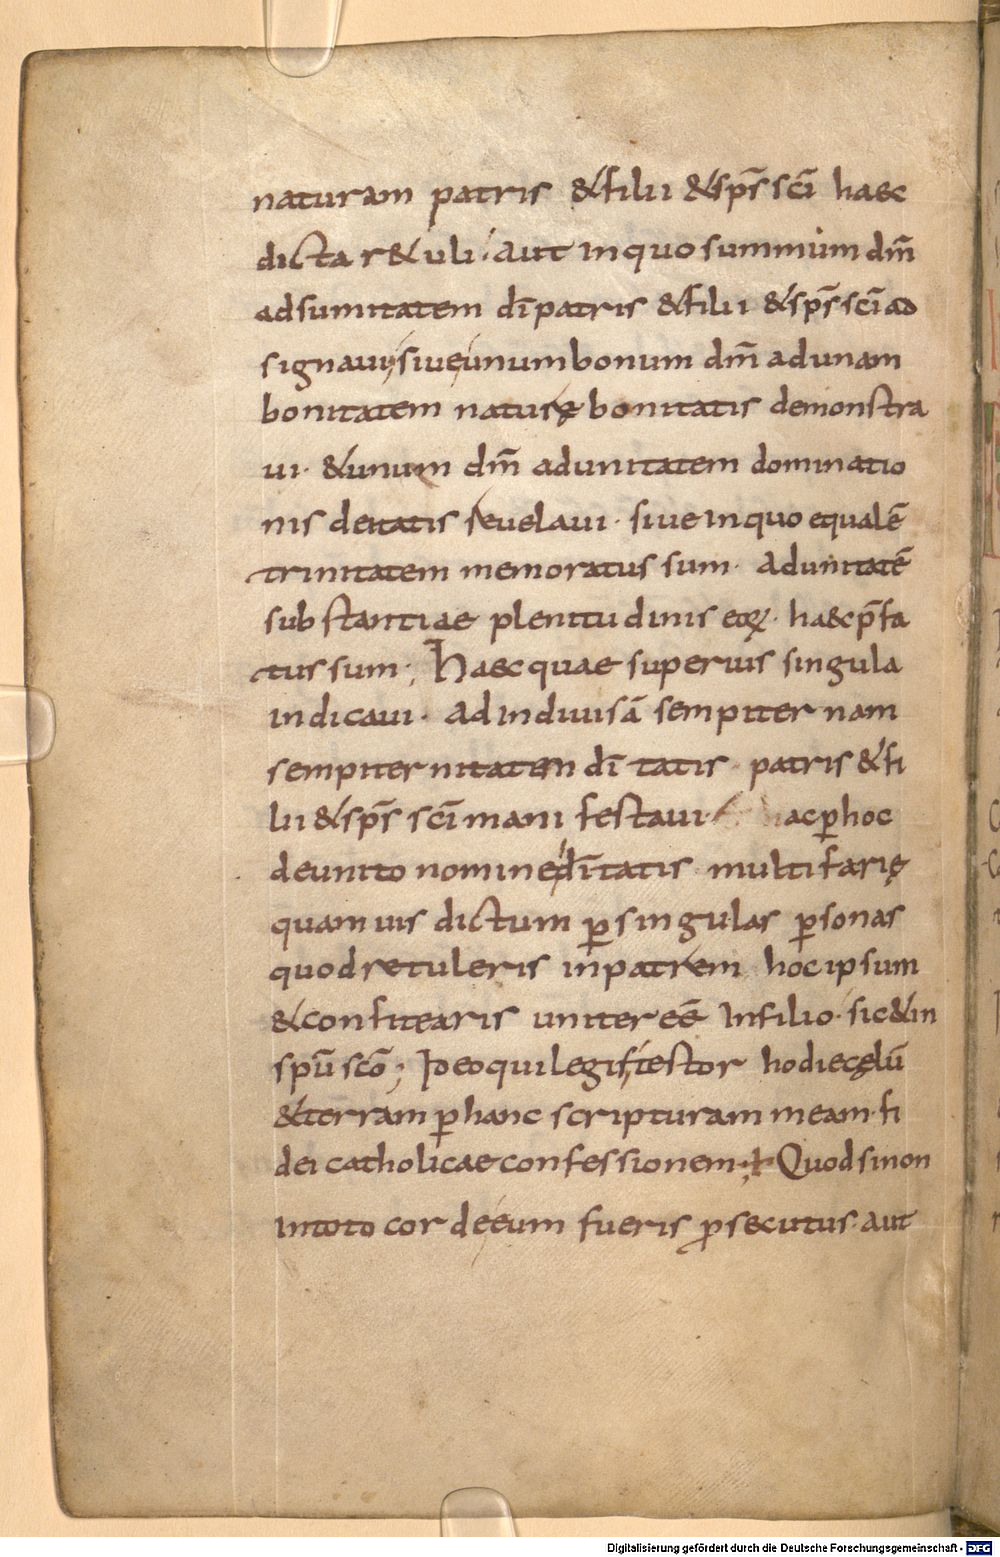 naturam patris & filii & sp̄s sc̄i haec
dicta r&uli. Aut in quo summum dm̄
ad sumitatem dī patris & filii & sp̄s sc̄i ad
signavi, sive unum bonum dm̄ ad unam
bonitatem naturę bonitatis demonstra
vi. & unum dm̄ ad unitatem dominatio
nis deitatis revelavi. sive in quo equalē
trinitatem memoratus sum. Ad unitatē
substantiae plenitudinis eoꝝ. ha&c p̄fa
tus sum; Haec quae superius singula
indicavi. Ad indivisā sempiternam
sempiternitatem dī tatis. patris & fi
lii & sp̄s sc̄i manifestavi. ac ꝑ hoc
de unito nomine dītatis. multifarię
quamvis dictum ꝑ singulas ꝑsonas
quod retuleris in patrem hoc ipsum
& confitearis uniter eē In filio. sic & in
sp̄u sc̄o; Ideo qui legis testor hodie cęlū
& terram ꝑ hanc scripturam meam. fi
dei catholicae confessionem. Quod si non
in toto corde eum fueris ꝓsecutus. aut
Digitalisierung gefördert durch die Deutsche Forschungsgemeinschaft - DFG